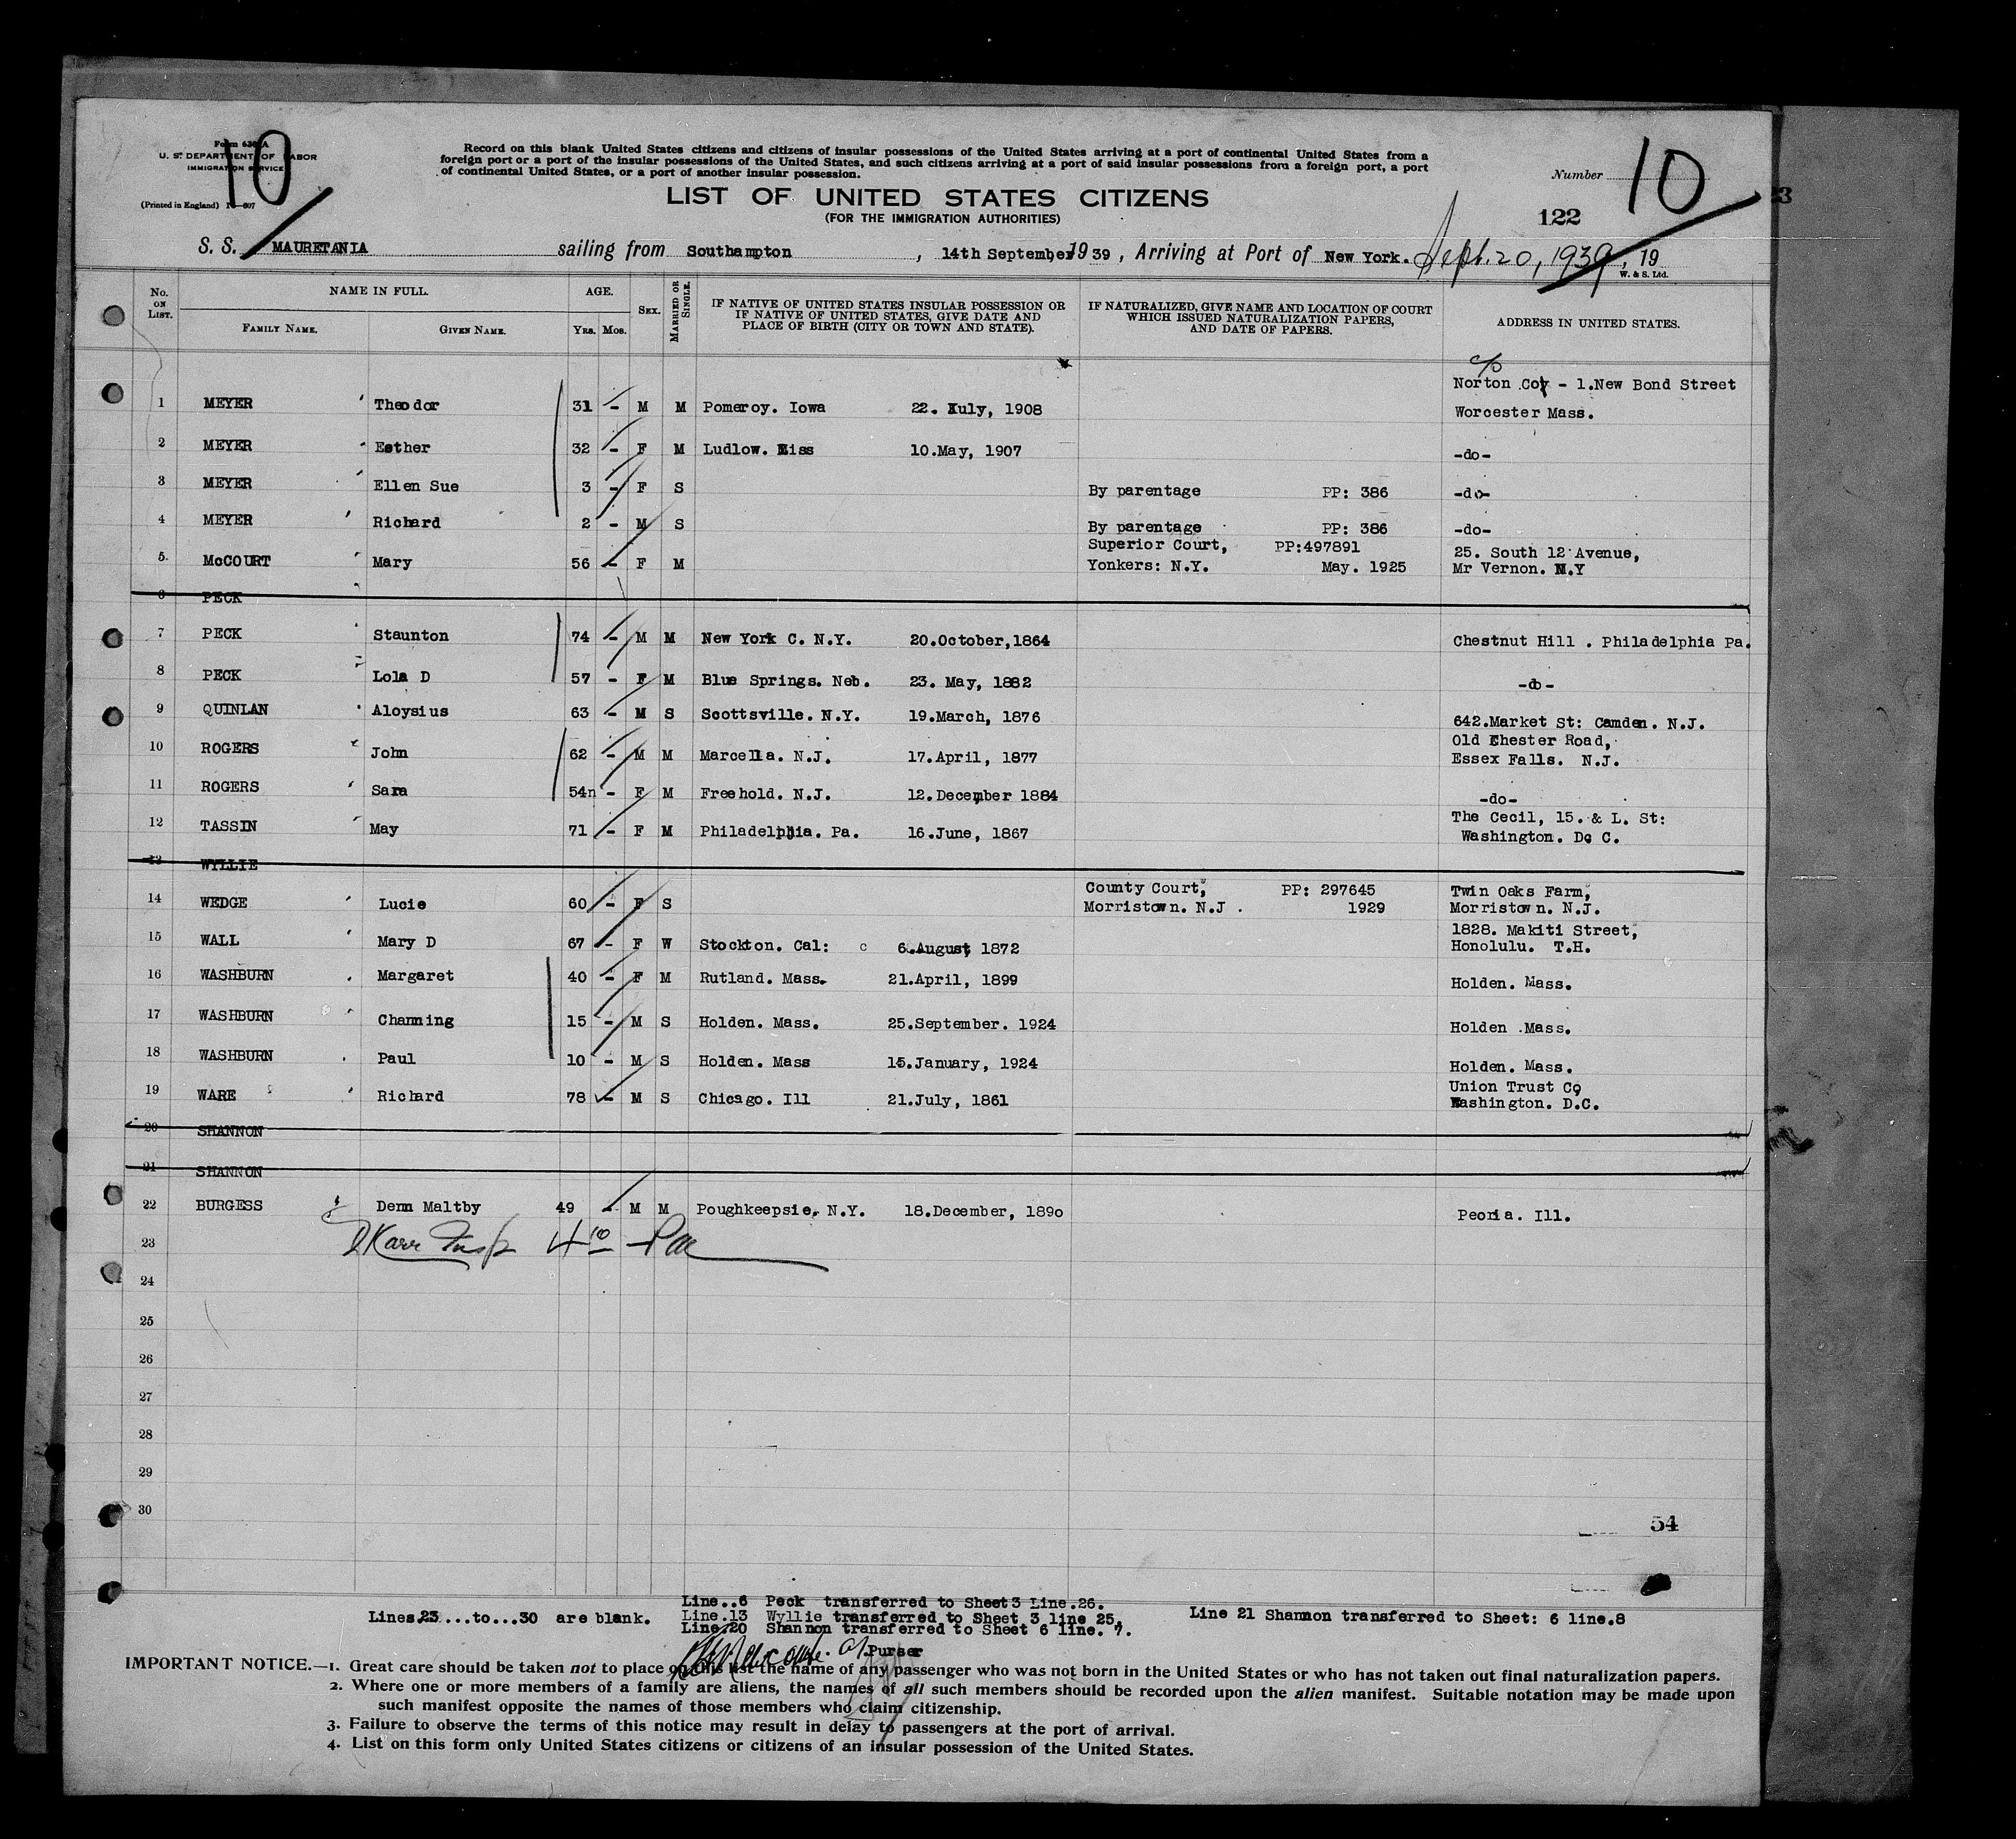 10
Form 630 A
U. S. DEPARTMENT OF LABOR
IMMIGRATION SERVICE
(Printed in England)
Record on this blank United States citizens and citizens of insular possessions of the United States arriving at a port of continental United States from a
foreign port or a port of the insular possessions of the United States, and such citizens arriving at a port of said insular possessions from a foreign port, a port
of continental United States, or a port of another insular possession.
LIST OF UNITED STATES CITIZENS
(FOR THE IMMIGRATION AUTHORITIES)
Number 10
122
S. S. MAURETANIA sailing from Southampton , 14th September 1939 , Arriving at Port of New York. Sept. 20, 1939, 19
W. & S. Ltd.
No. ON LIST. NAME IN FULL. FAMILY NAME. GIVEN NAME. AGE. YRS. MOS. SEX. MARRIED OR SINGLE. IF NATIVE OF UNITED STATES INSULAR POSSESSION OR IF NATIVE OF UNITED STATES, GIVE DATE AND PLACE OF BIRTH (CITY OR TOWN AND STATE). IF NATURALIZED, GIVE NAME AND LOCATION OF COURT WHICH ISSUED NATURALIZATION PAPERS, AND DATE OF PAPERS. ADDRESS IN UNITED STATES.
c/o
Norton Coy - 1.New Bond Street
1 MEYER Theodor 31 - M M Pomeroy. Iowa 22. July, 1908 Worcester Mass.
2 MEYER Esther 32 - F M Ludlow. Miss 10.May, 1907 -do-
3 MEYER Ellen Sue 3 - F S By parentage PP: 386 -do-
4 MEYER Richard 2 - M S By parentage PP: 386 -do-
Superior Court, PP:497891 25. South 12 Avenue,
5. McCOURT Mary 56 - F M Yonkers: N.Y. May. 1925 Mr Vernon. N.Y
6 PECK
7 PECK Staunton 74 - M M New York C. N.Y. 20.October,1864 Chestnut Hill . Philadelphia Pa.
8 PECK Lola D 57 - F M Blue Springs. Neb. 23. May, 1882 -do-
9 QUINLAN Aloysius 63 - M S Scottsville. N.Y. 19.March, 1876 642.Market St: Camden. N.J.
Old Chester Road,
10 ROGERS John 62 - M M Marcella. N.J. 17.April, 1877 Essex Falls. N.J.
11 ROGERS Sara 54n - F M Freehold. N.J. 12.December 1884 -do-
The Cecil, 15. & L. St:
12 TASSIN May 71 - F M Philadelphia. Pa. 16.June, 1867 Washington. D. C.
13 WYLLIE
County Court, PP: 297645 Twin Oaks Farm,
14 WEDGE Lucie 60 - F S Morristown. N.J . 1929 Morristown. N.J.
1828. Makiti Street,
15 WALL Mary D 67 - F W Stockton. Cal: c 6.August, 1872 Honolulu. T.H.
16 WASHBURN Margaret 40 - F M Rutland. Mass. 21.April, 1899 Holden. Mass.
17 WASHBURN Channing 15 - M S Holden. Mass. 25.September. 1924 Holden .Mass.
18 WASHBURN Paul 10 - M S Holden. Mass 15.January, 1924 Holden. Mass.
Union Trust Co,
19 WARE Richard 78 - M S Chicago. Ill 21.July, 1861 Washington. D.C.
20 SHANNON
21 SHANNON
22 BURGESS Denn Maltby 49 - M M Poughkeepsie. N.Y. 18.December, 1890 Peoria. Ill.
23
24
25
26
27
28
29
30
54
Line..6 Peck transferred to Sheet 3 Line.26.
Lines.23...to...30 are blank. Line.13 Wyllie transferred to Sheet 3 line 25. Line 21 Shannon transferred to Sheet: 6 line.8
Line.20 Shannon transferred to Sheet 6 line. 7.
Purser
IMPORTANT NOTICE.—1. Great care should be taken not to place on this list the name of any passenger who was not born in the United States or who has not taken out final naturalization papers.
2. Where one or more members of a family are aliens, the names of all such members should be recorded upon the alien manifest. Suitable notation may be made upon
such manifest opposite the names of those members who claim citizenship.
3. Failure to observe the terms of this notice may result in delay to passengers at the port of arrival.
4. List on this form only United States citizens or citizens of an insular possession of the United States.